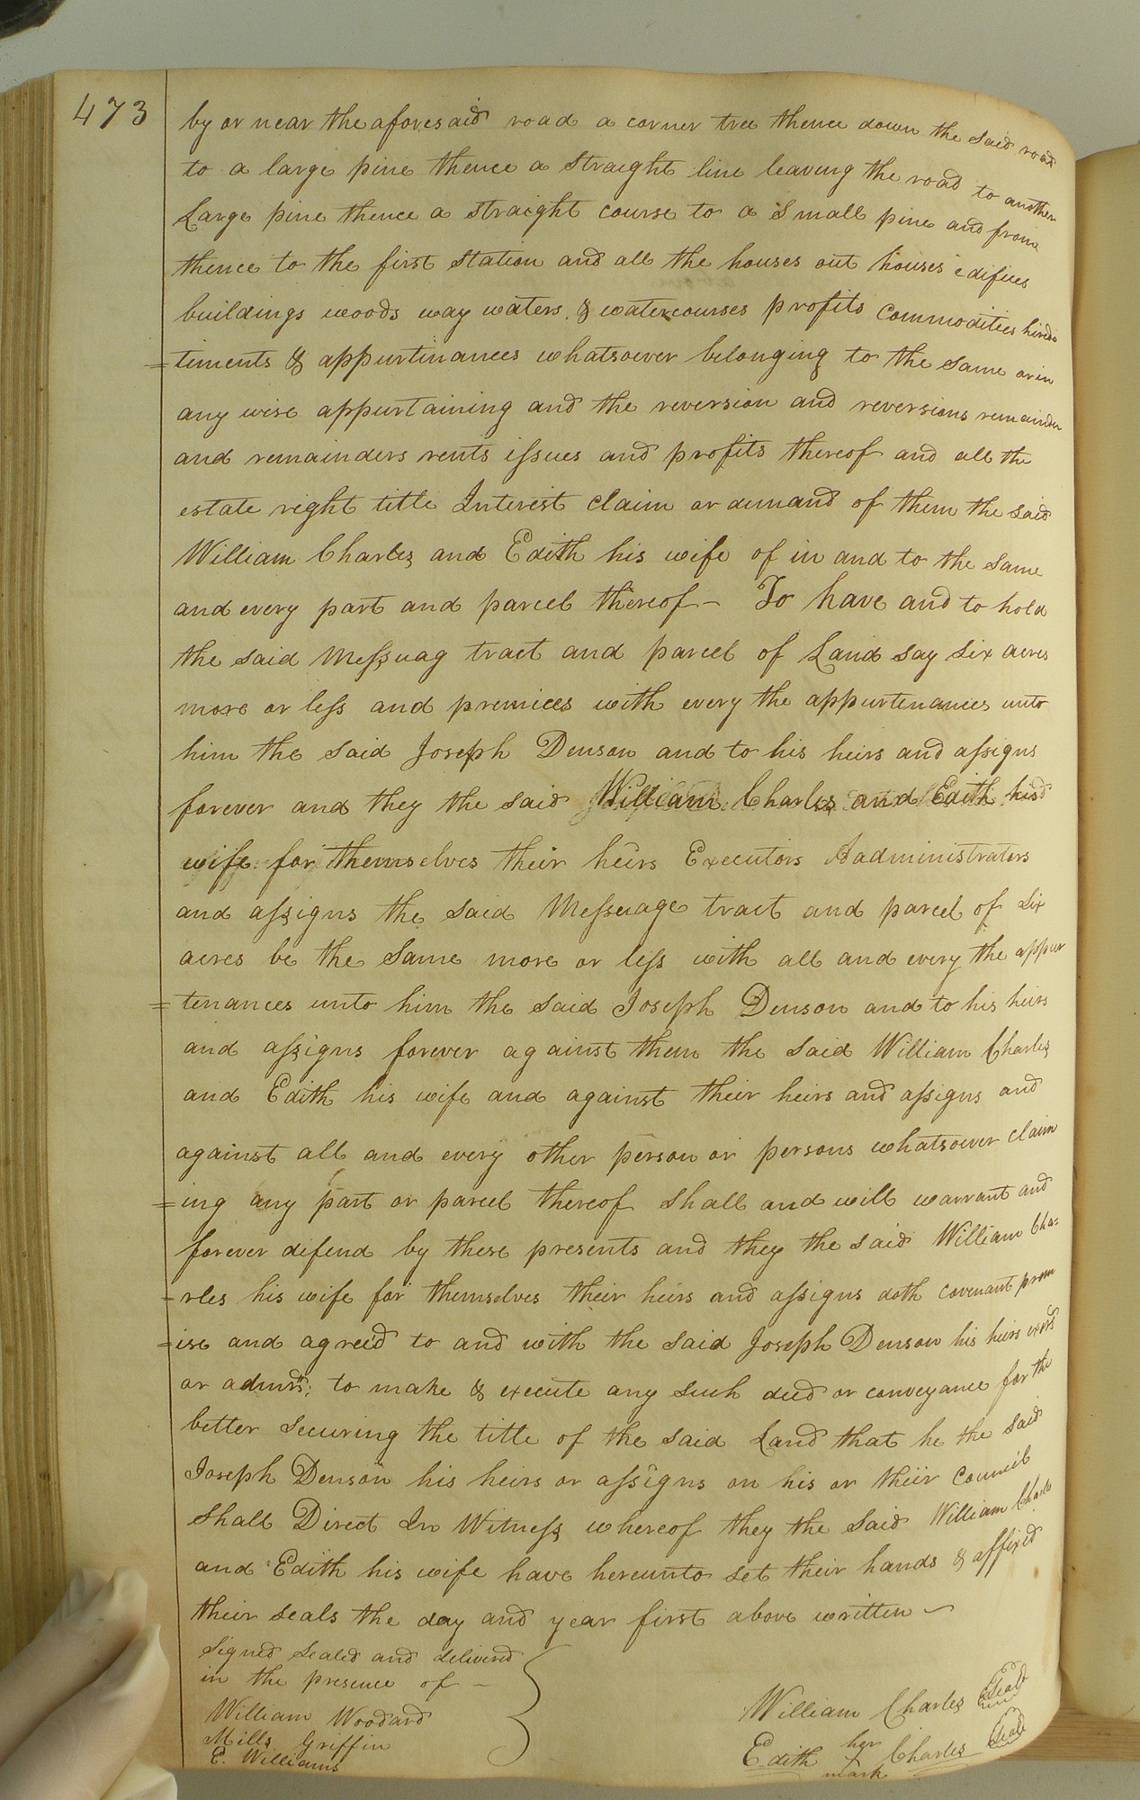 473
by or near the aforesaid road a corner tree thence down the said road
to a large pine thence a straight line leaving the road to another
Large pine thence a straight course to a small pine and from
thence to the first station and all the houses out houses edifices
buildings woods way waters & watercourses profits commodities heredi
=timents & appurtinances whatsoever belonging to the same or in
any wise appurtaining and the reversion and reversions remainder
and remainders rents issues and profits thereof and all the
estate right title Interest claim or demand of them the said
William Charles and Edith his wife of in and to the same
and every part and parcel thereof - To have and to hold
the said Messuag tract and parcel of Land say six acres
more or less and premices with every the appurtenances unto
him the said Joseph Denson and to his heirs and assigns
forever and they the said William Charles and Edith his
wife for themselves their heirs Executors Aadministrators
and assigns the said Messuage tract and parcel of six
acres be the same more or less with all and every the appur
=tenances unto him the said Joseph Denson and to his heirs
and assigns forever against them the said William Charles
and Edith his wife and against their heirs and assigns and
against all and every other person or persons whatsoever claim
=ing any part or parcel thereof shall and will warrant and
forever difend by these presents and they the said William Cha=
-rles his wife for themselves their heirs and assigns doth covenant prom
=ise and agree'd to and with the said Joseph Denson his heirs exors
or admrs; to make & execute any such deed or conveyance for the
better securing the title of the said Land that he the said
Joseph Denson his heirs or assigns on his or their Council
shall Direct In Witness whereof they the said William Charles
and Edith his wife have hereunto set their hands & affixed
their seals the day and year first above written -
Signed Sealed and delivered
in the presence of -
William Woodard
Mills Griffin
E. Williams
William Charles Seal
her
Edith Charles Seal
mark